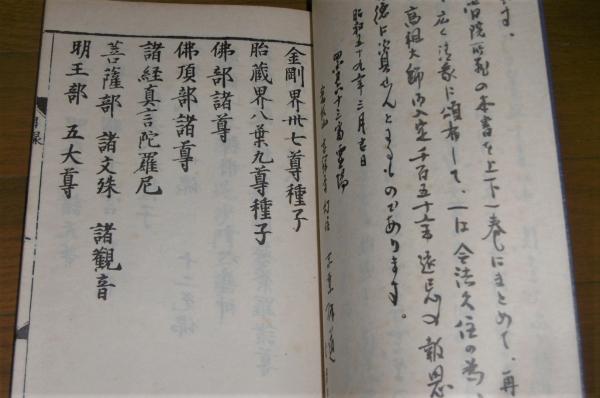 ます。
常院所蔵の本書を上下一巻にまとめて、再
広く法家に頒布して、一は令法久住の為、
高祖大師御入定千百五十年遠忌の報恩
徳に資せんとするものであります。
昭和五十九年三月吉日
四国六十三番霊場
金剛界卅七尊種子
胎蔵界八葉九尊種子
佛部諸尊
佛頂部諸尊
諸経真言陀羅尼
菩薩部 諸文殊 諸觀音
明王部 五大尊
目録